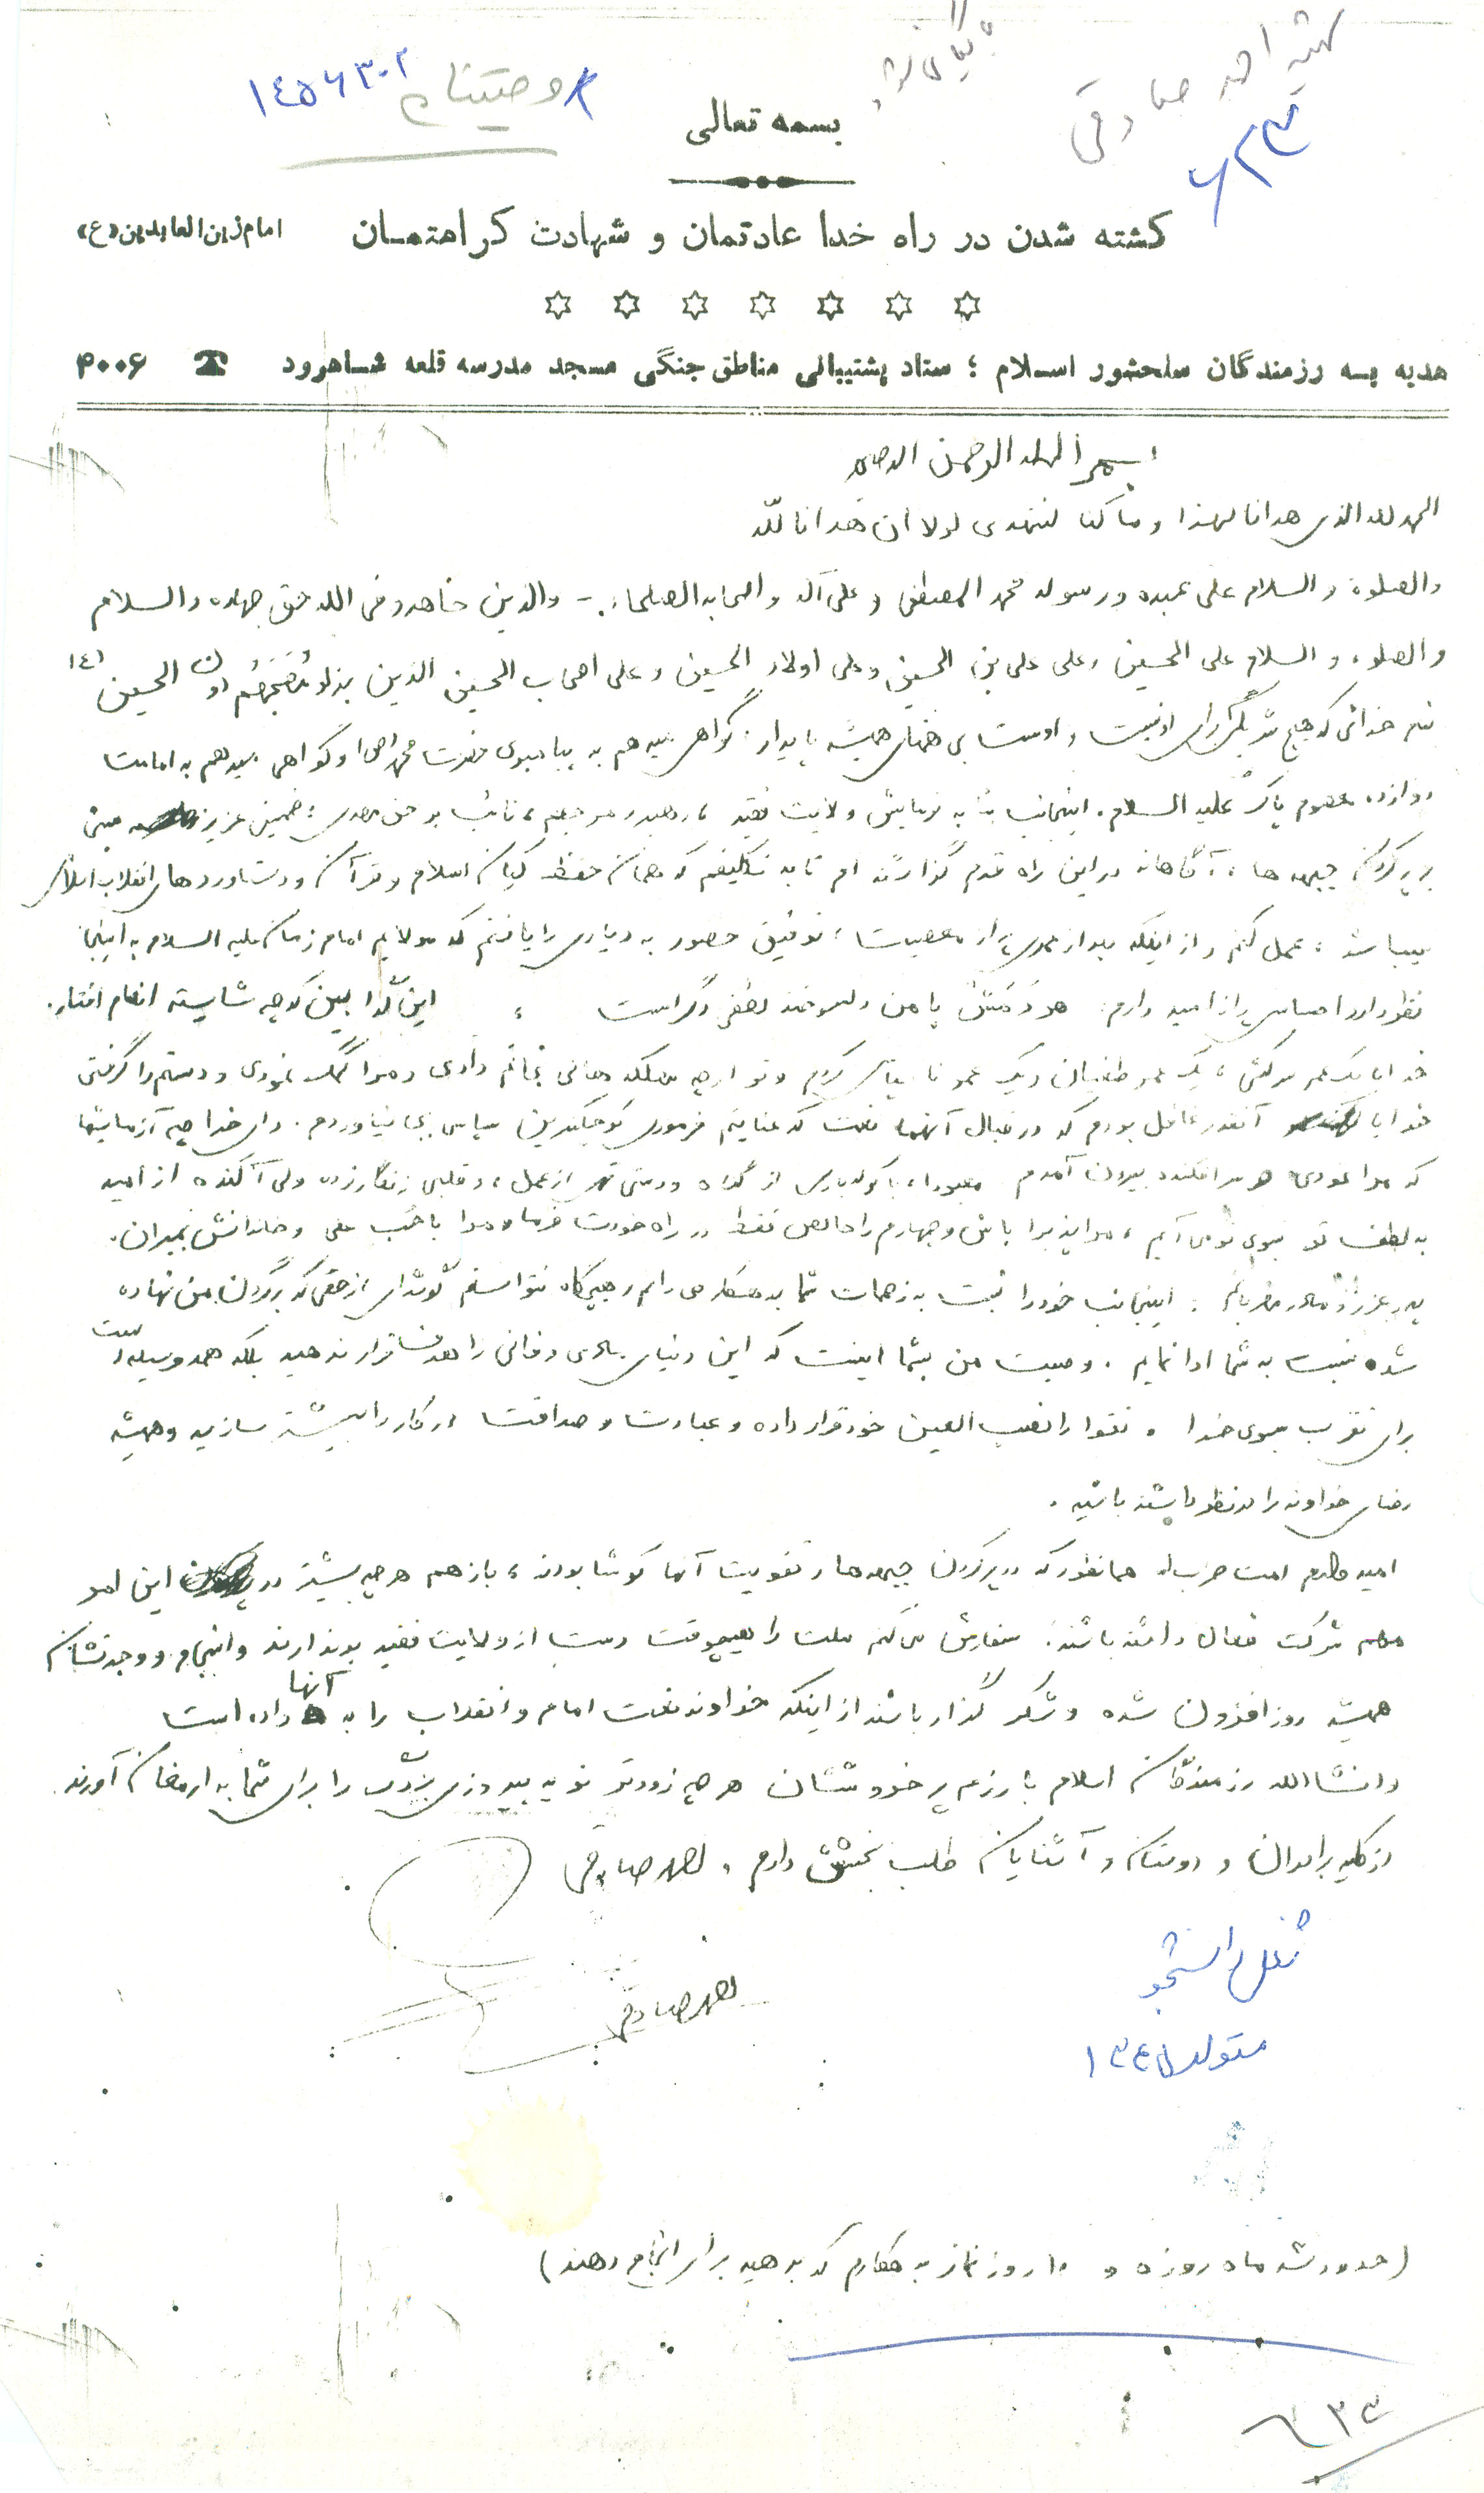 شهید احمد صادقی
بایگانی شود
وصیتنام
۱۴۵۶۳۰۲
۶۲۳
بسمه تعالی
کشته شدن در راه خدا عادتمان و شهادت کرامتمان امام زین العابدین (ع)
هدیه به رزمندگان سلحشور اسلام ؛ ستاد پشتیبانی مناطق جنگی مسجد مدرسه قلعه شاهرود ☎ ۴۰۰۶
بسم الله الرحمن الرحیم
الحمد لله الذی هدانا لهذا و ما کنا لنهتدی لولا ان هدانا الله
والصلوة و السلام علی عبده و رسوله محمد المصطفی و علی آله و اصحابه الصلحاء. - والذین جاهدو فی الله حق جهاده والسلام
و الصلوة و السلام علی الحسین و علی علی بن الحسین و علی اولاد الحسین و علی اصحاب الحسین الذین بذلو مُهَجَهُم دون الحسین (ع)
بنام خدائی که هیچ شریکی برای او نیست و اوست بی همتای همیشه پایدار. گواهی میدهم به پیامبری حضرت محمد (ص) و گواهی میدهم به امامت
دوازده معصوم پاک علیه السلام. اینجانب بنا به فرمایش ولایت فقیه، رهبر و مرجعم، نائب بر حق مهدی؛ خمینی عزیز مبنی
بر پر کردن جبهه ها، آگاهانه در این راه قدم گذارده ام تا به تکلیفم که همان حفظ کیان اسلام و قرآن و دستاوردهای انقلاب اسلامی
میباشد، عمل کنم و از اینکه بعد از عمری پر از معصیت، توفیق حضور به دیاری را یافتم که مولایم امام زمان علیه السلام به اینجا
نظر دارد احساس پر از امید دارم. هر دَمَش با من دلسوخته لطفی دگر است ، این گدا بین که چه شایسته انعام افتاد.
خدایا یک عمر سرکشی، یک عمر طغیان و یک عمر ناسپاسی کردم و تو از چه مهلکه هائی نجاتم دادی و مرا کمک نمودی و دستم را گرفتی
خدایا آنقدر غافل بودم که در قبال آنهمه نعمت که عنایتم فرمودی کوچکترین سپاسی بجا نیاوردم. وای خدا چه آزمایشها
که مرا نمودی و سرافکنده بیرون آمدم معبودا، با کوله باری از گناه و دستی تهی از عمل، و قلبی زنگار زده ولی آکنده از امید
به لطف تو بسوی تو می آیم، مرا پذیرا باش و جهادم را خالص فقط در راه خودت فرما و مرا با حُب علی و خاندانش بمیران.
پدر عزیز و مادر مهربانم. اینجانب خود را نسبت به زحمات شما بدهکار می دانم و هیچگاه نتوانستم گوشه ای از حقی که بر گردن من نهاده
شده نسبت به شما ادا نمایم. وصیت من بشما اینست که این دنیای مادی و فانی را هدف قرار ندهید بلکه همه وسیله ایست
برای تقرب بسوی خدا و تقوا را نصب العین خود قرار داده و عبادت و صداقت در کار را بیشتر سازید و همیشه
رضای خداوند را مد نظر داشته باشید.
امیدوارم امت حزب الله همانطور که در پر کردن جبهه ها و تقویت آنها کوشا بودند، باز هم هر چه بیشتر در این امر
مهم شرکت فعال داشته باشند. سفارش می کنم ملت را هیچوقت دست از ولایت فقیه برندارند و انسجام و وحدتشان
همیشه روز افزون شده و شکر گذار باشند از اینکه خداوند نعمت امام و انقلاب را به آنها داده است
و انشاالله رزمندگان اسلام با رزم پر خروششان هر چه زودتر نوید پیروزی بزرگ را برای شما به ارمغان آورند.
از کلیه برادران و دوستان و آشنایان طلب بخشش دارم. احمد صادقی
احمد صادقی
شغل دانشجو
متولد ۱۳۴۵
(حدود شه ماه روزه و ۱۰ روز نماز بدهکارم که بدهید برای انجام دهند)
۶۲۳